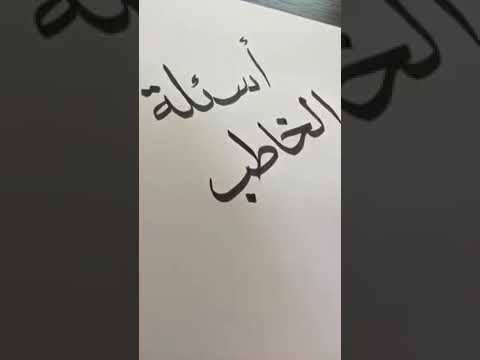 أسئلة
الخاطب